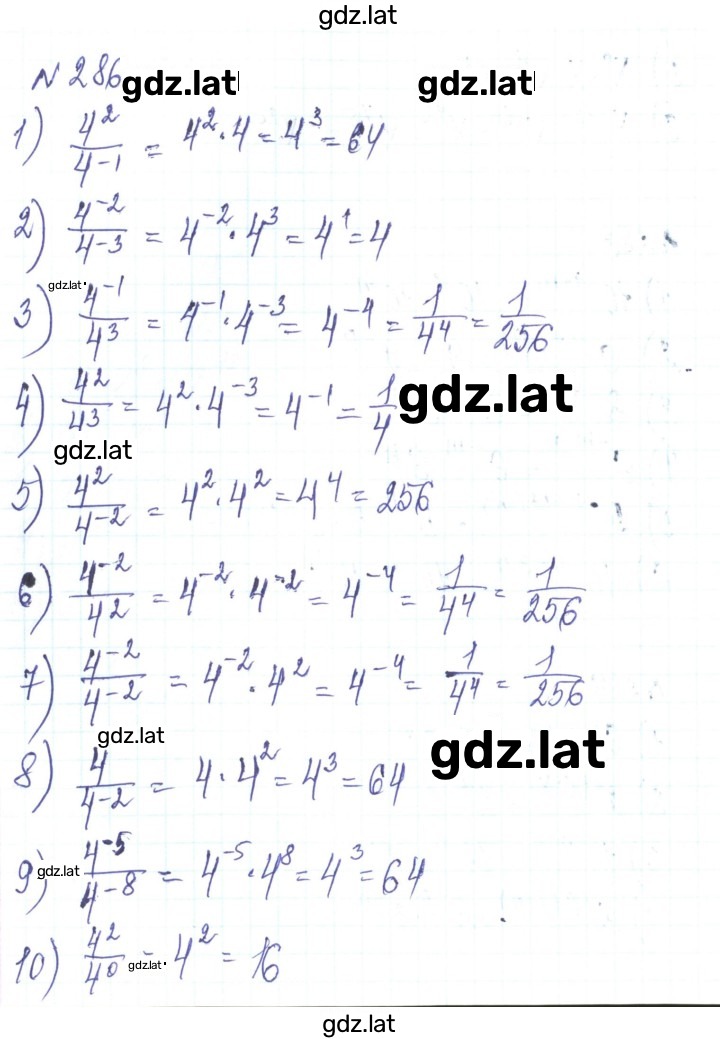 gdz.lat
N 286 gdz.lat gdz.lat
1) 4²/4⁻¹ = 4² · 4 = 4³ = 64
2) 4⁻²/4⁻³ = 4⁻² · 4³ = 4¹ = 4
gdz.lat
3) 4⁻¹/4³ = 4⁻¹ · 4⁻³ = 4⁻⁴ = 1/4⁴ = 1/256
4) 4²/4³ = 4² · 4⁻³ = 4⁻¹ = 1/4 gdz.lat
gdz.lat
5) 4²/4⁻² = 4² · 4² = 4⁴ = 256
6) 4⁻²/4² = 4⁻² · 4⁻² = 4⁻⁴ = 1/4⁴ = 1/256
7) 4⁻²/4⁻² = 4⁻² · 4² = 4⁻⁴ = 1/4⁴ = 1/256
gdz.lat gdz.lat
8) 4/4⁻² = 4 · 4² = 4³ = 64
9) gdz.lat 4⁻⁵/4⁻⁸ = 4⁻⁵ · 4⁸ = 4³ = 64
10) 4²/4⁰ = gdz.lat 4² = 16
gdz.lat